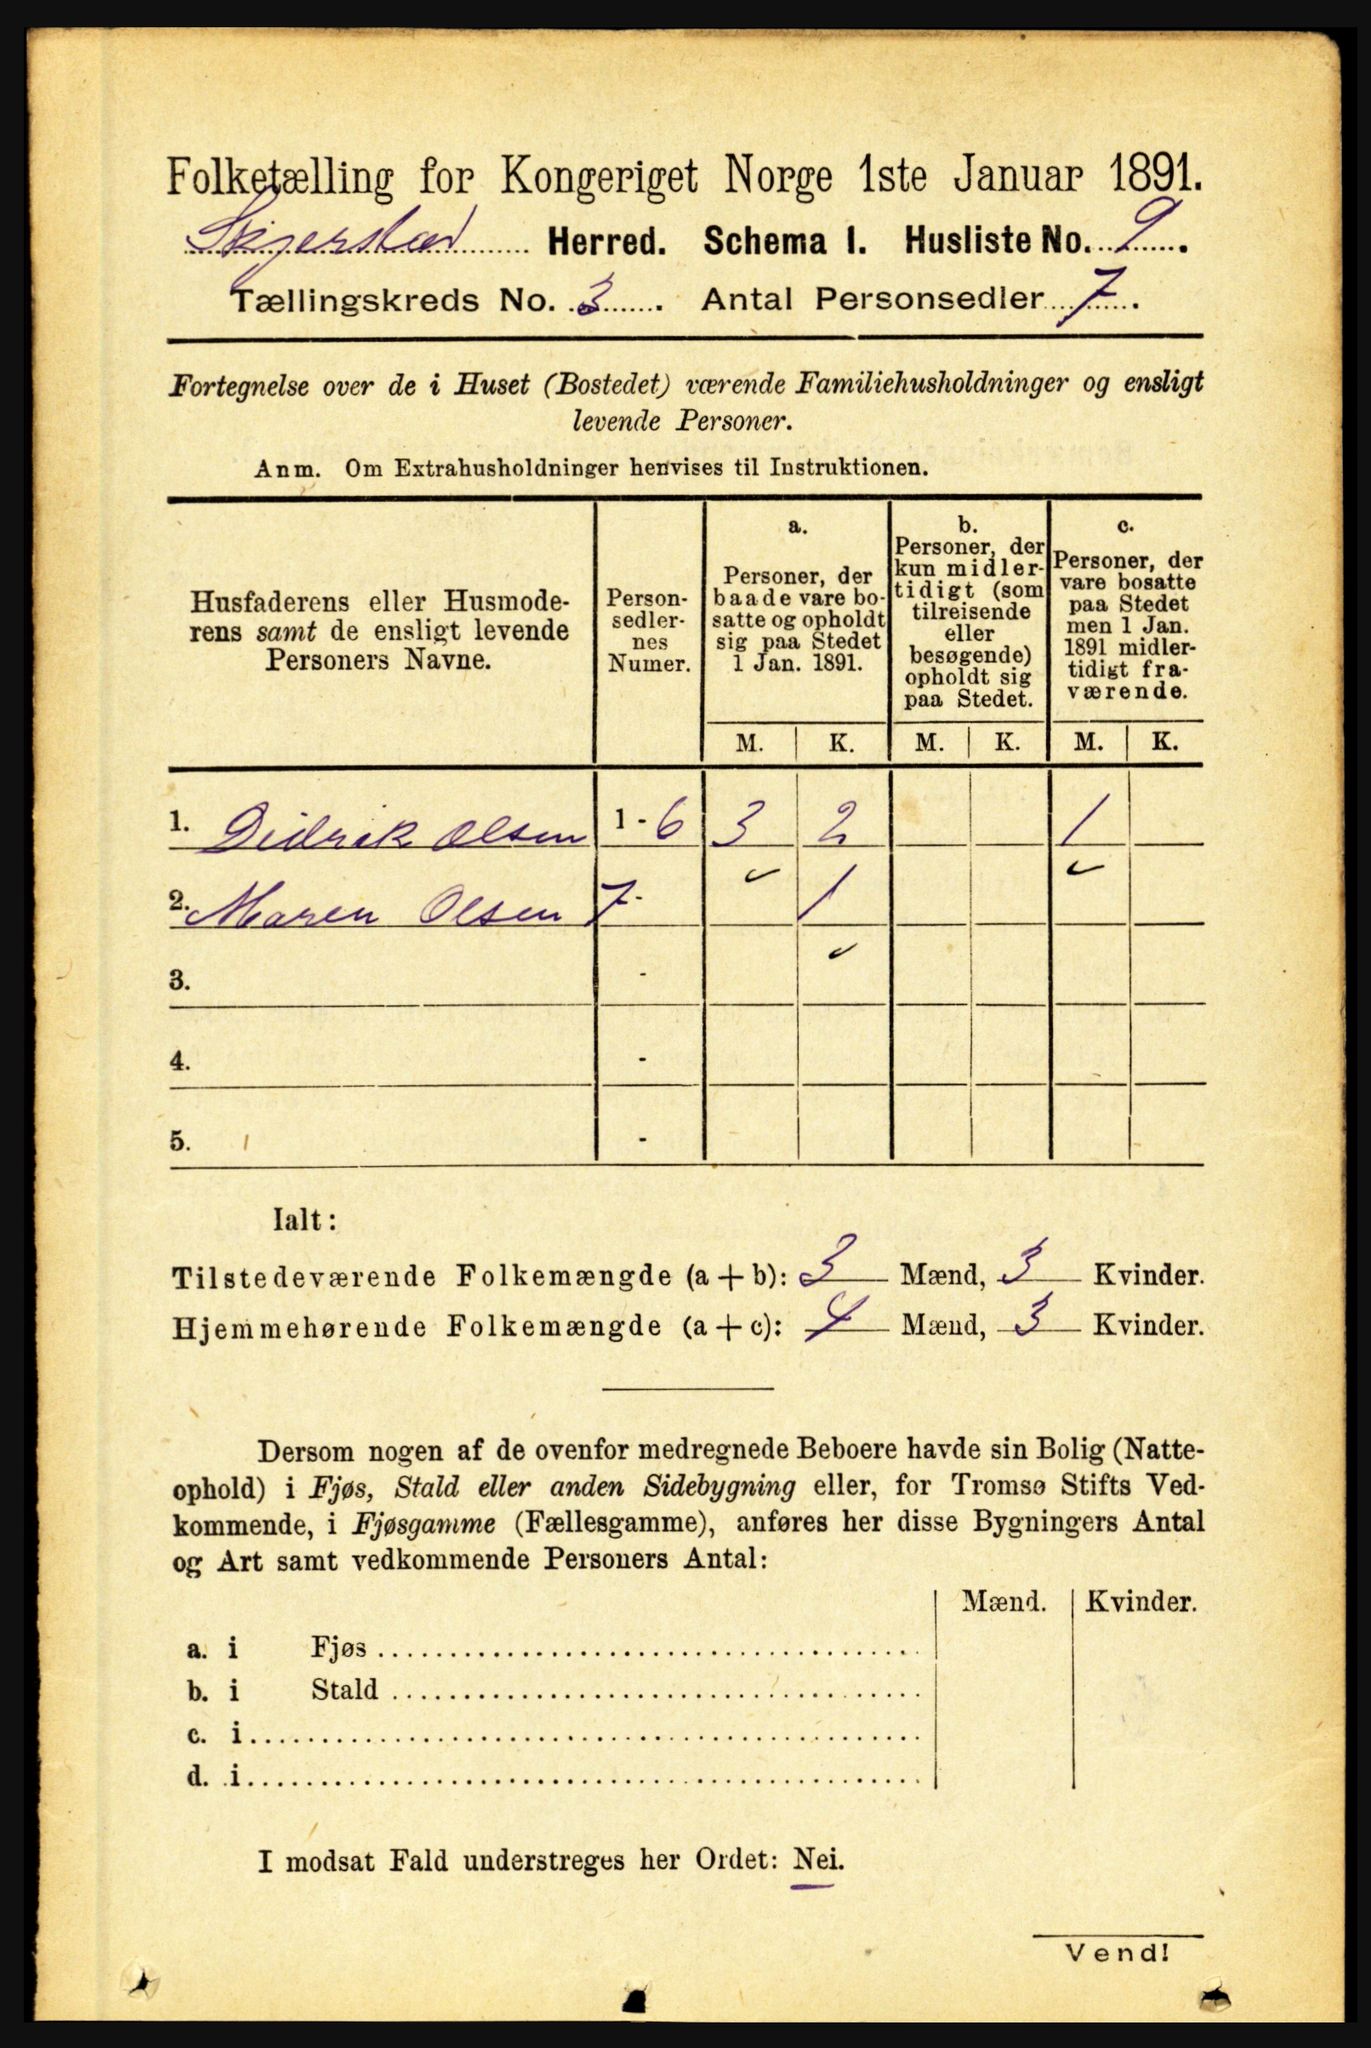 Folketælling for Kongeriget Norge 1ste Januar 1891.
Skjerstad Herred. Schema 1. Husliste No. 9.
Tællingskreds No. 3. Antal Personsedler 7.
Fortegnelse over de i Huset (Bostedet) værende Familiehusholdninger og ensligt
levende Personer.
Anm. Om Extrahusholdninger henvises til Instruktionen.
Husfaderens eller Husmode-
rens samt de ensligt levende
Personers Navne.
Person-
sedler-
nes
Numer.
a.
Personer, der
baade vare bo-
satte og opholdt
sig paa Stedet
1 Jan. 1891.
b.
Personer, der
kun midler-
tidigt (som
tilreisende
eller
besøgende)
opholdt sig
paa Stedet.
c.
Personer, der
vare bosatte
paa Stedet
men 1 Jan.
1891 midler-
tidigt fra-
værende.
M. K. M. K. M. K.
1. Didrik Olsen 1 - 6 3 2 1
2. Maren Olsen 7- 1
3. -
4. -
5. -
Ialt:
Tilstedeværende Folkemængde (a + b): 3 Mænd, 3 Kvinder.
Hjemmehørende Folkemængde (a + c): 4 Mænd, 3 Kvinder.
Dersom nogen af de ovenfor medregnede Beboere havde sin Bolig (Natte-
ophold) i Fjøs, Stald eller anden Sidebygning eller, for Tromsø Stifts Ved-
kommende, i Fjøsgamme (Fællesgamme), anføres her disse Bygningers Antal
og Art samt vedkommende Personers Antal:
Mænd. Kvinder.
a. i Fjøs
b. i Stald
c. i
d. i
I modsat Fald understreges her Ordet: Nei.
Vend!